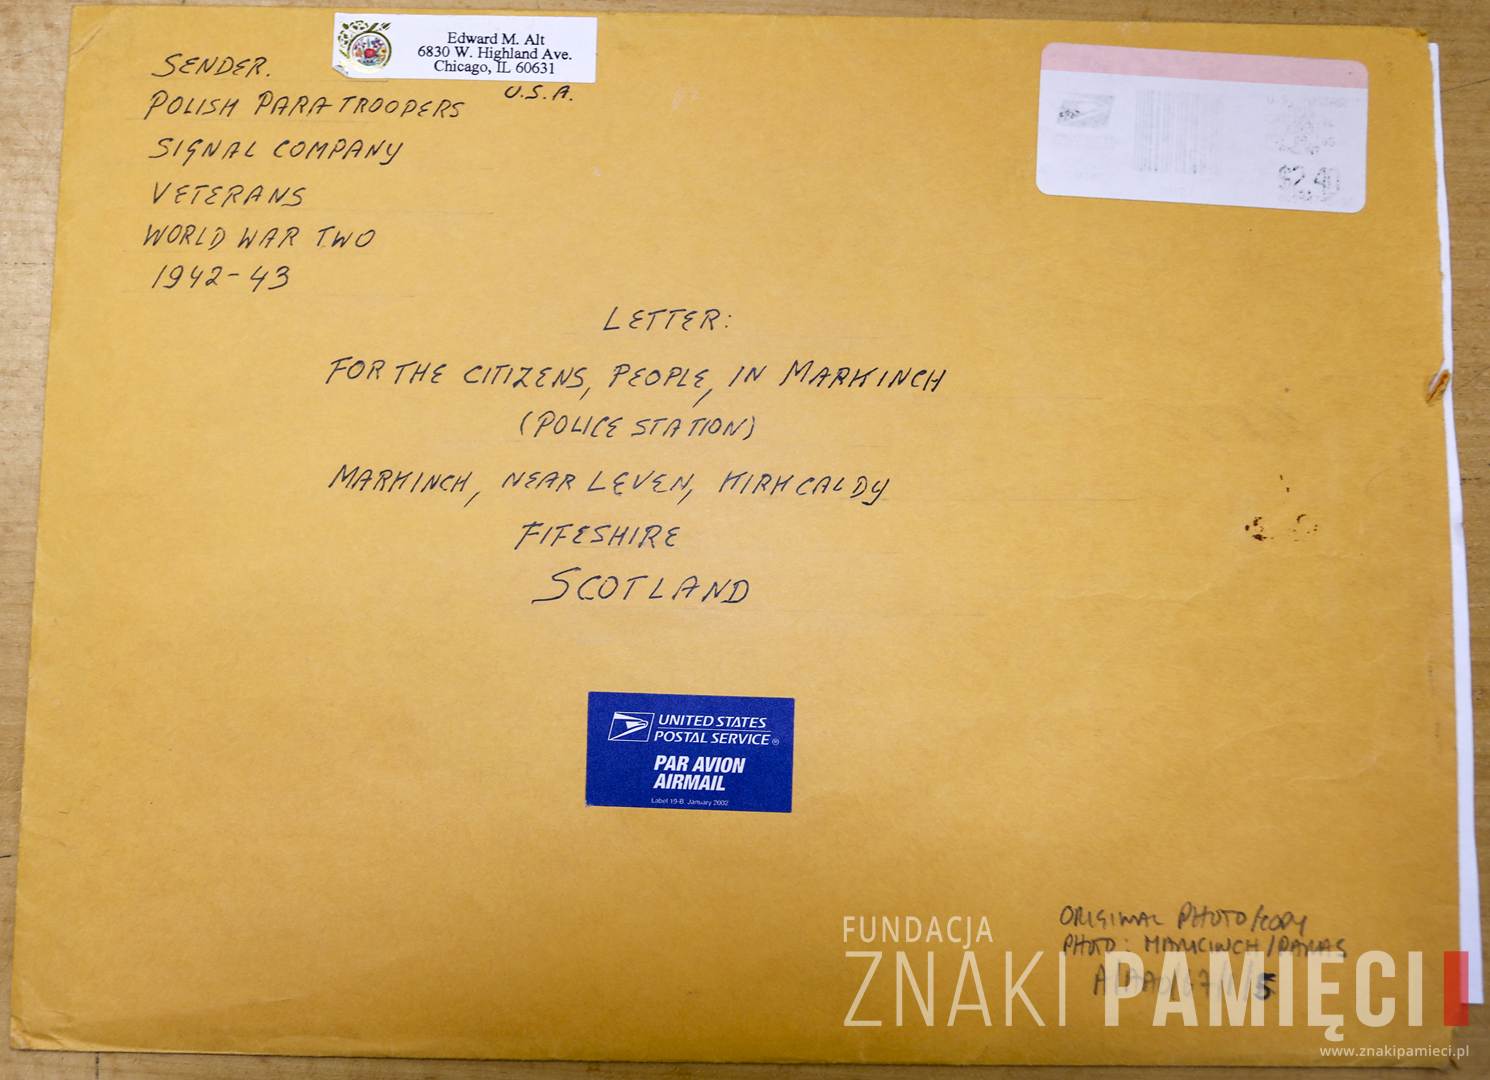 Edward M. Alt
6830 W. Highland Ave.
Chicago, IL 60631
U.S.A.
SENDER.
POLISH PARATROOPERS
SIGNAL COMPANY
VETERANS
WORLD WAR TWO
1942-43
$2.40
LETTER:
FOR THE CITIZENS, PEOPLE, IN MARKINCH
(POLICE STATION)
MARKINCH, NEAR LEVEN, KIRKCALDY
FIFESHIRE
SCOTLAND
UNITED STATES
POSTAL SERVICE®
PAR AVION
AIRMAIL
Label 19-B January 2002
ORIGINAL PHOTO/COPY
PHOTO: MARKINCH/PARAS
FUNDACJA
ZNAKI PAMIĘCI
www.znakipamieci.pl